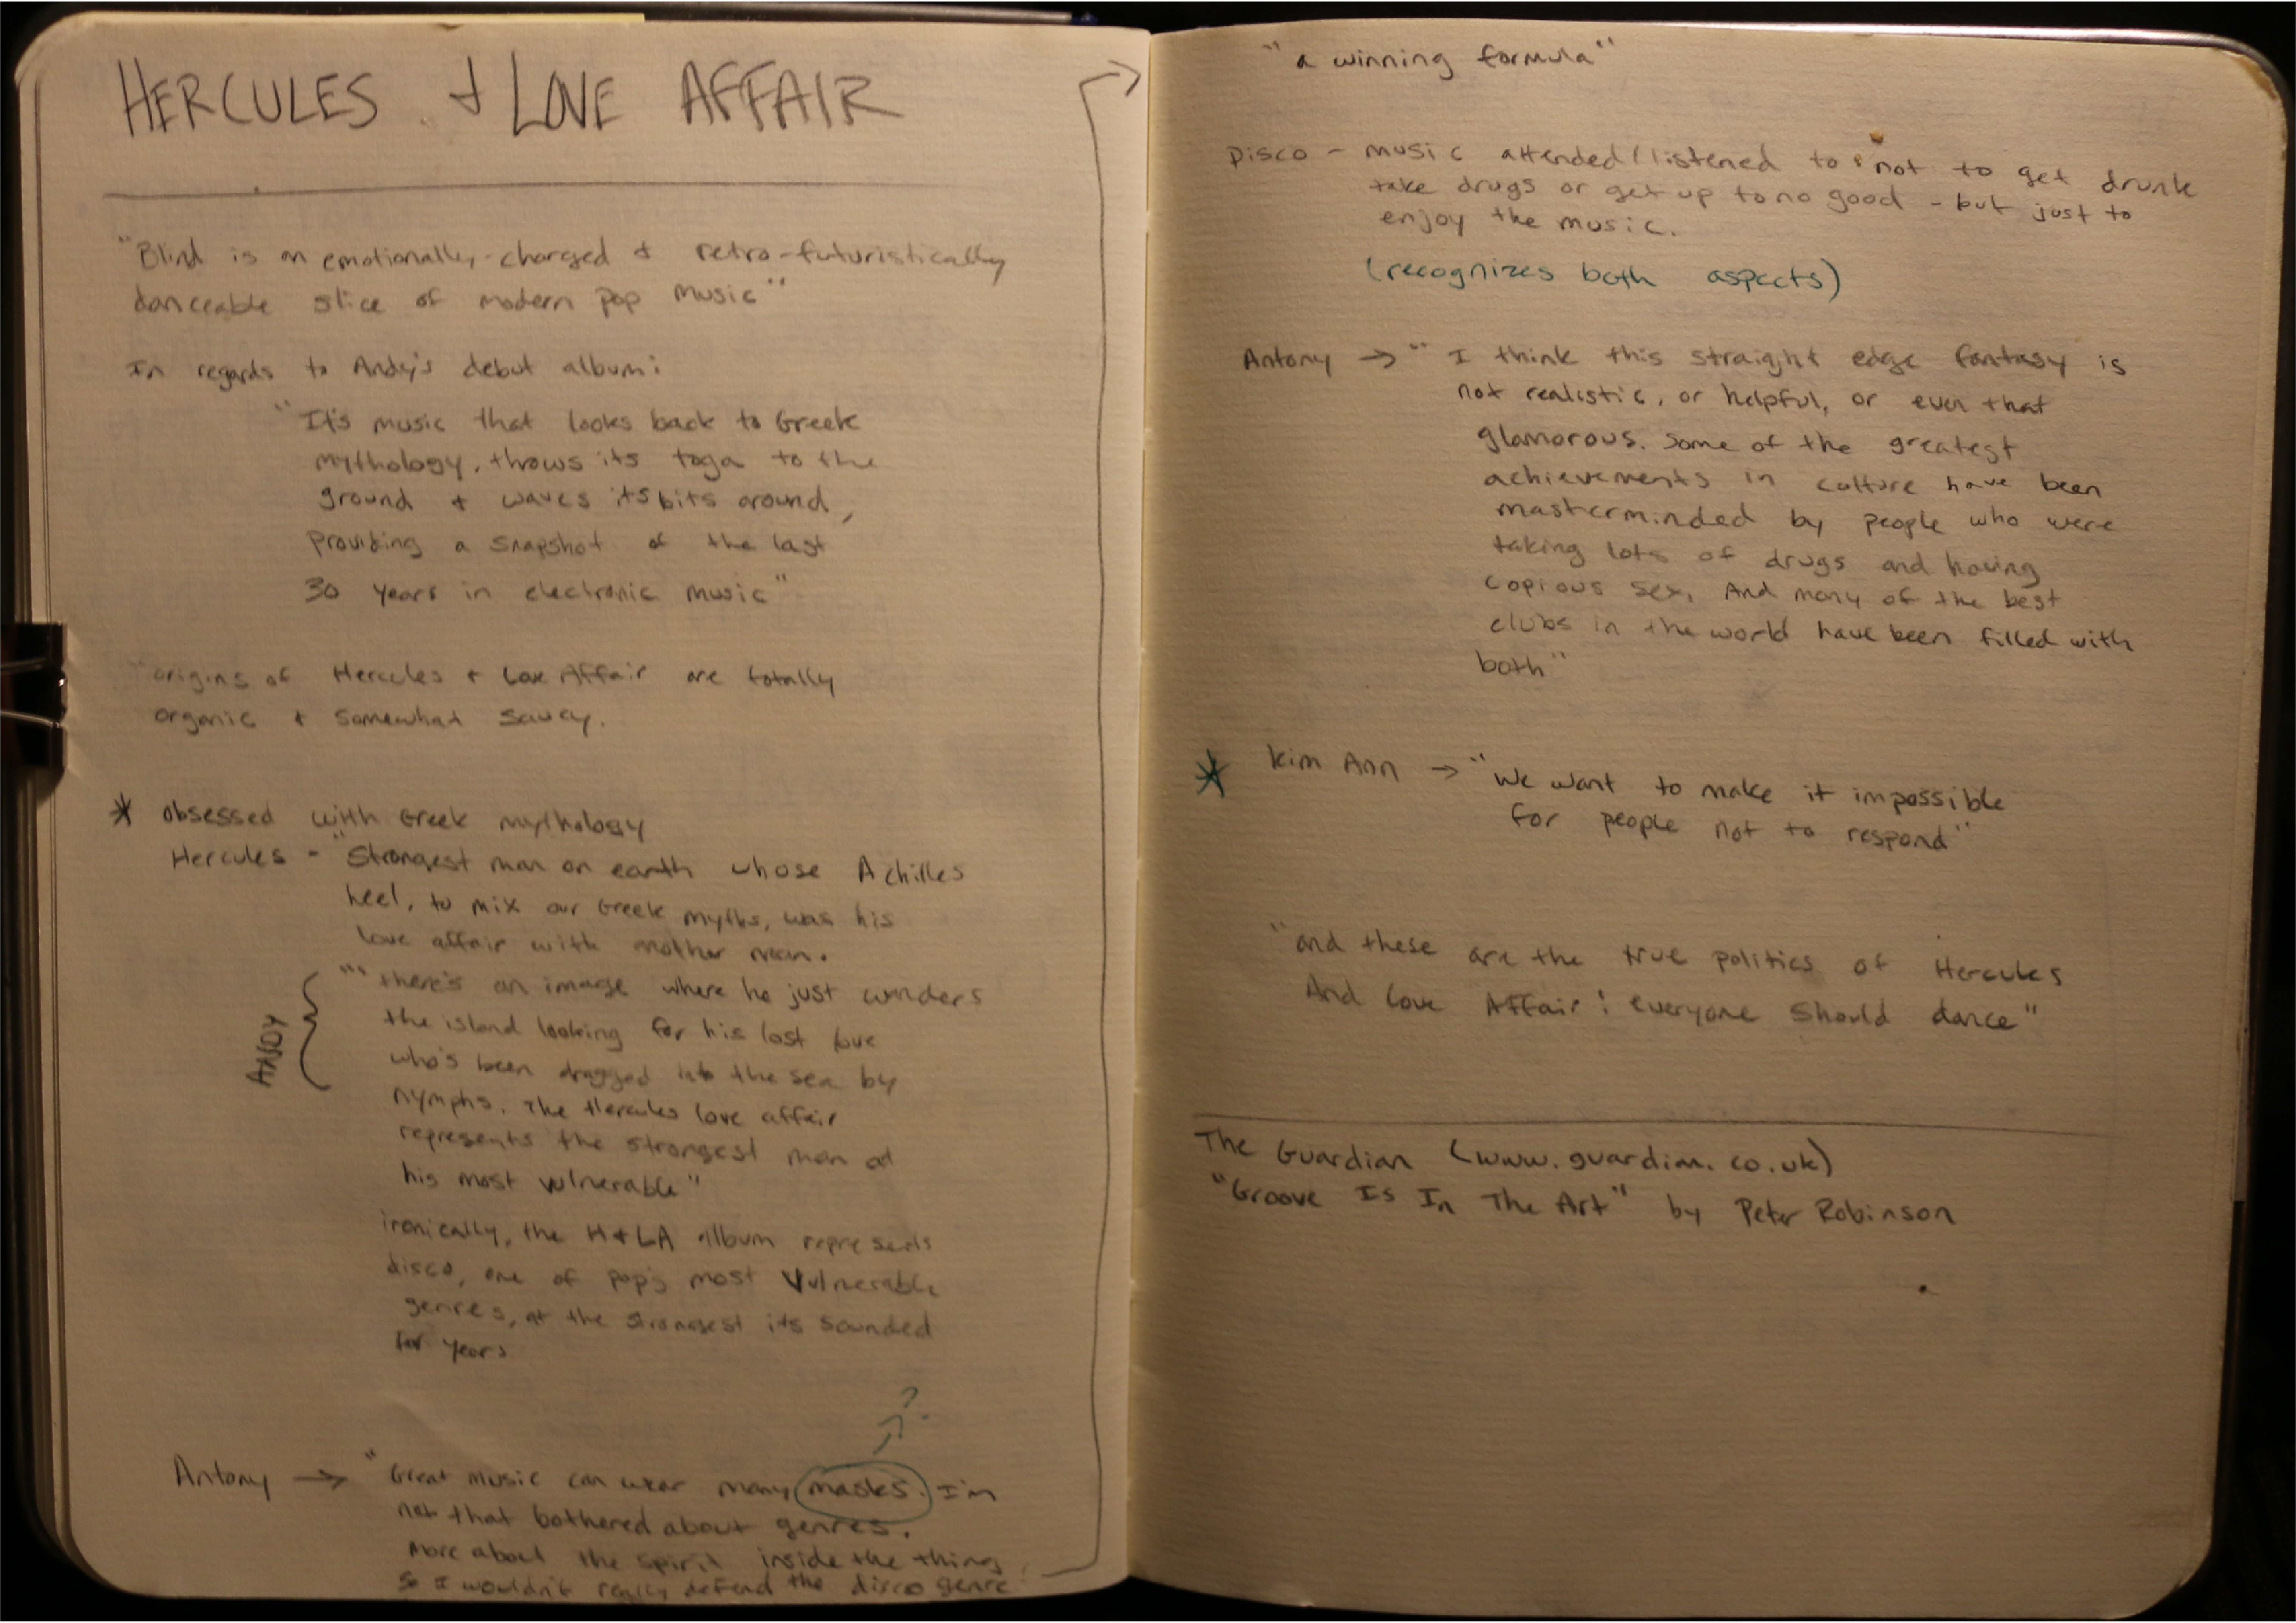 HERCULES & LOVE AFFAIR
"Blind is an emotionally-charged & retro-futuristically
danceable slice of modern pop music"
In regards to Andy's debut album:
"It's music that looks back to Greek
mythology, throws its toga to the
ground & waves its bits around,
providing a snapshot of the last
30 years in electronic music"
"origins of Hercules & Love Affair are totally
organic & somewhat saucy.
* obsessed with Greek mythology
Hercules - "Strongest man on earth whose Achilles
heel, to mix our Greek myths, was his
love affair with another man.
ANDY
""there's an image where he just wanders
the island looking for his lost love
who's been dragged into the sea by
nymphs. The Hercules love affair
represents the strongest man at
his most vulnerable"
ironically, the H&LA album represents
disco, one of pop's most vulnerable
genres, at the strongest its sounded
for years
?
Antony → "Great music can wear many masks. I'm
not that bothered about genres.
more about the spirit inside the thing
so I wouldn't really defend the disco genre
"a winning formula"
Disco - music attended/listened to not to get drunk
take drugs or get up to no good - but just to
enjoy the music.
(recognizes both aspects)
Antony → "I think this straight edge fantasy is
not realistic, or helpful, or even that
glamorous. Some of the greatest
achievements in culture have been
masterminded by people who were
taking lots of drugs and having
copious sex. And many of the best
clubs in the world have been filled with
both"
* Kim Ann → "We want to make it impossible
for people not to respond"
"and these are the true politics of Hercules
And Love Affair: everyone should dance"
The Guardian (www.guardian.co.uk)
"Groove Is In The Art" by Peter Robinson